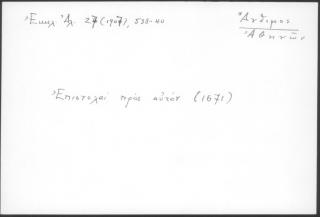 Ἐκκλ. Ἀλ. 27 (1907), 538-40
Ἄνθιμος
Ἀθηνῶν
Ἐπιστολαὶ πρὸς αὐτόν (1671)